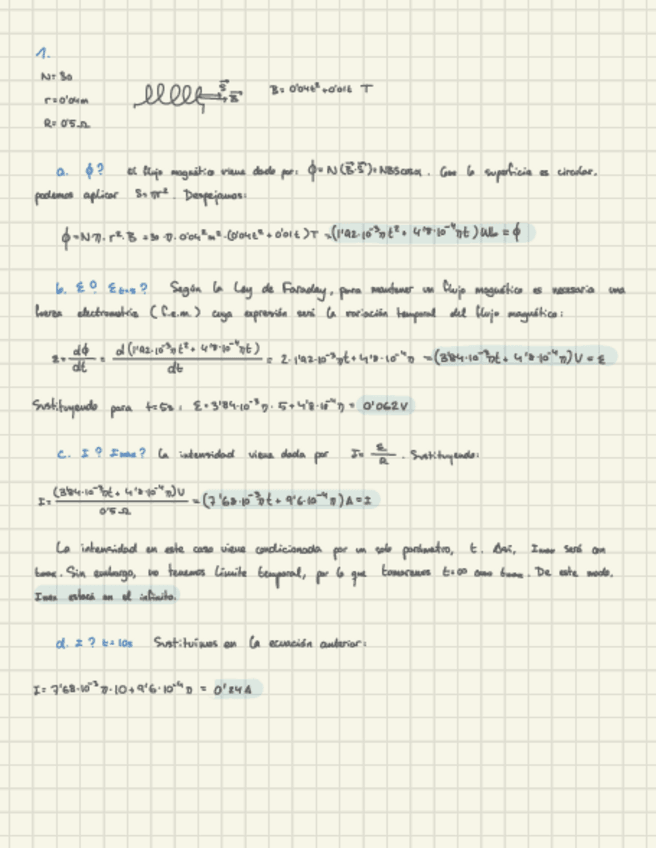 1.
N= 30
r=0'04m
R= 0'5 Ω
S⃗
B⃗
B= 0'04t²+0'01t T
a. ϕ? El flujo magnético viene dado por: ϕ= N(B⃗·S⃗)=NBScosα. Como la superficie es circular,
podemos aplicar S=πr². Despejamos:
ϕ=N·π·r²·B =30·π·0'04²m²·(0'04t²+0'01t)T =(1'92·10⁻³πt²+ 4'8·10⁻⁴πt)Wb = ϕ
b. ε? ε t=5? Según la Ley de Faraday, para mantener un flujo magnético es necesaria una
fuerza electromotriz (f.e.m.) cuya expresión será la variación temporal del flujo magnético:
ε= dϕ/dt = d(1'92·10⁻³πt²+4'8·10⁻⁴πt)/dt = 2·1'92·10⁻³πt+4'8·10⁻⁴π =(3'84·10⁻³πt+ 4'8·10⁻⁴π)V = ε
Sustituyendo para t=5s: ε=3'84·10⁻³π·5+4'8·10⁻⁴π = 0'062V
c. I? Imax? La intensidad viene dada por I= ε/R. Sustituyendo:
I= (3'84·10⁻³πt+ 4'8·10⁻⁴π)V/0'5Ω =(7'68·10⁻³πt+ 9'6·10⁻⁴π)A=I
La intensidad en este caso viene condicionada por un solo parámetro, t. Así, Imax será con
tmax. Sin embargo, no tenemos límite temporal, por lo que tomaremos t=∞ como tmax. De este modo,
Imax estará en el infinito.
d. I? t=10s Sustituimos en la ecuación anterior:
I= 7'68·10⁻³π·10+9'6·10⁻⁴π = 0'24A